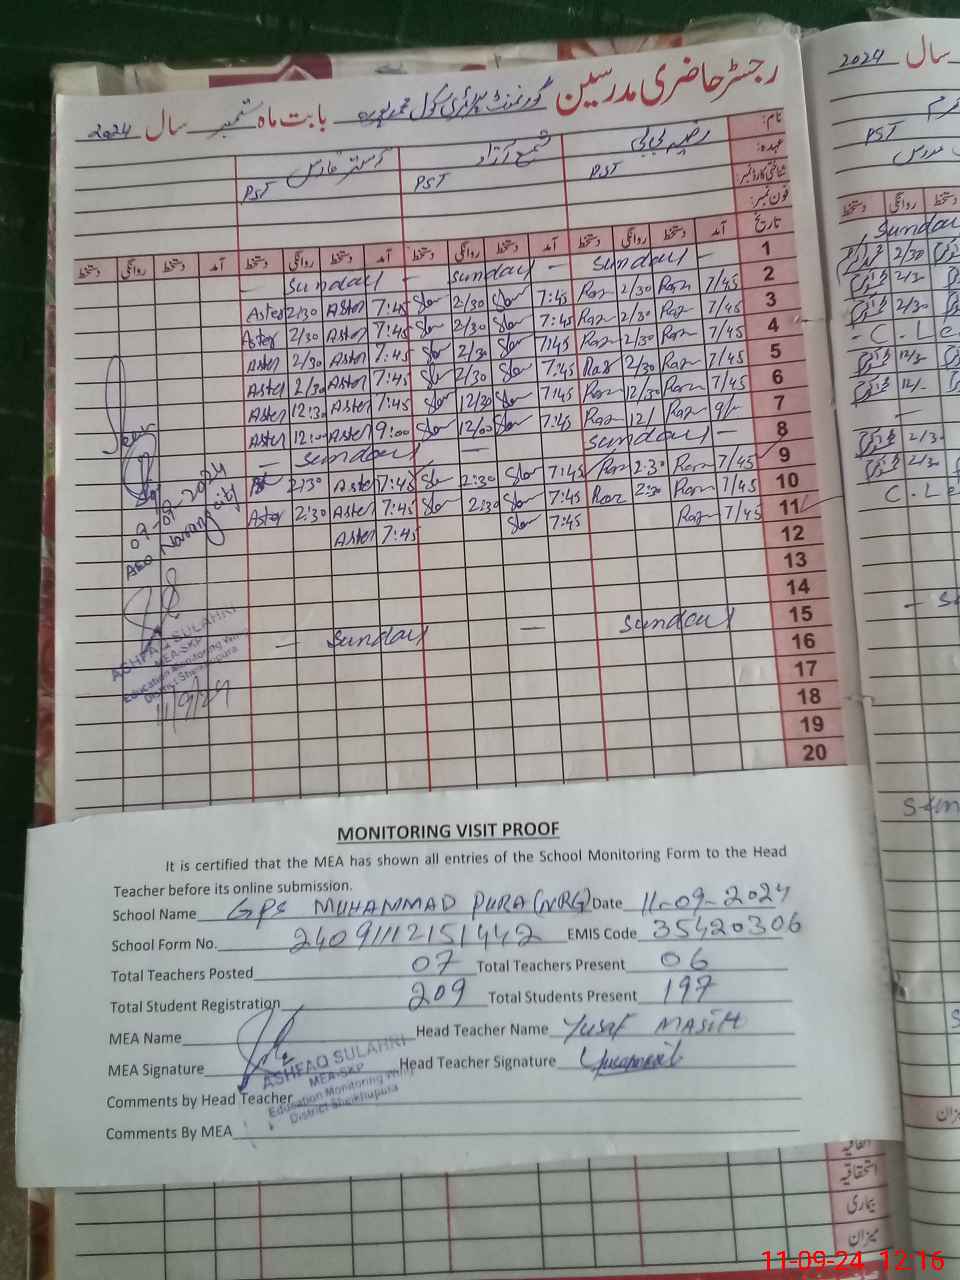 رجسٹر حاضری مدرسین گورنمنٹ پرائمری سکول محمد پورہ بابت ماہ ستمبر سال 2024
نام:
رضیہ بی بی
شمع آزاد
عہدہ:
PST PST PST
شناختی کارڈ نمبر:
فون نمبر:
تاریخ آمد دستخط روانگی دستخط آمد دستخط روانگی دستخط آمد دستخط روانگی دستخط آمد دستخط روانگی دستخط
— Sunday — Sunday — Sunday — 1
Aster 2/30 Aster 7:45 2/30 7:45 Raz 2/30 Raz 7/45 2
Aster 2/30 Aster 7:45 2/30 7:45 Raz 2/30 Raz 7/45 3
Aster 2/30 Aster 7:45 2/30 7:45 Raz 2/30 Raz 7/45 4
Aster 2/30 Aster 7:45 2/30 7:45 Raz 2/30 Raz 7/45 5
Aster 12:30 Aster 7:45 12/30 7:45 Raz 12/30 Raz 7/45 6
Aster 12:00 Aster 9:00 12/00 7:45 Raz 12/ Raz 9/- 7
— Sunday — Sunday — 8
2:30 Aster 7:45 2:30 7:45 Raz 2:30 Raz 7/45 9
Aster 2:30 Aster 7:45 2:30 7:45 Raz 2:30 Raz 7/45 10
Aster 7:45 7:45 Raz 7/45 11
12
13
14
— Sunday — Sunday 15
16
17
18
19
20
Seen
07-09-2024
AEO Narang city
ASHFAQ SULAHRI
MEA-SKP
Education Monitoring Wing
District Sheikhupura
11/9/24
سال 2024
PST
روانگی دستخط
Sunday
2/30
2/3
2/30
- C. Le
12/3
12/-
—
2/3
2/30
C. Le
MONITORING VISIT PROOF
It is certified that the MEA has shown all entries of the School Monitoring Form to the Head
Teacher before its online submission.
School Name GPS MUHAMMAD PURA (NRG) Date 11-09-2024
School Form No. 24091112151442 EMIS Code 35420306
Total Teachers Posted 07 Total Teachers Present 06
Total Student Registration 209 Total Students Present 197
MEA Name Head Teacher Name Yusaf MASIH
MEA Signature Head Teacher Signature
ASHFAQ SULAHRI
MEA-SKP
Education Monitoring Wing
District Sheikhupura
Comments by Head Teacher
Comments By MEA
اتفاقیہ
استحقاقیہ
بیماری
میزان
میزان
11-09-24 12:16